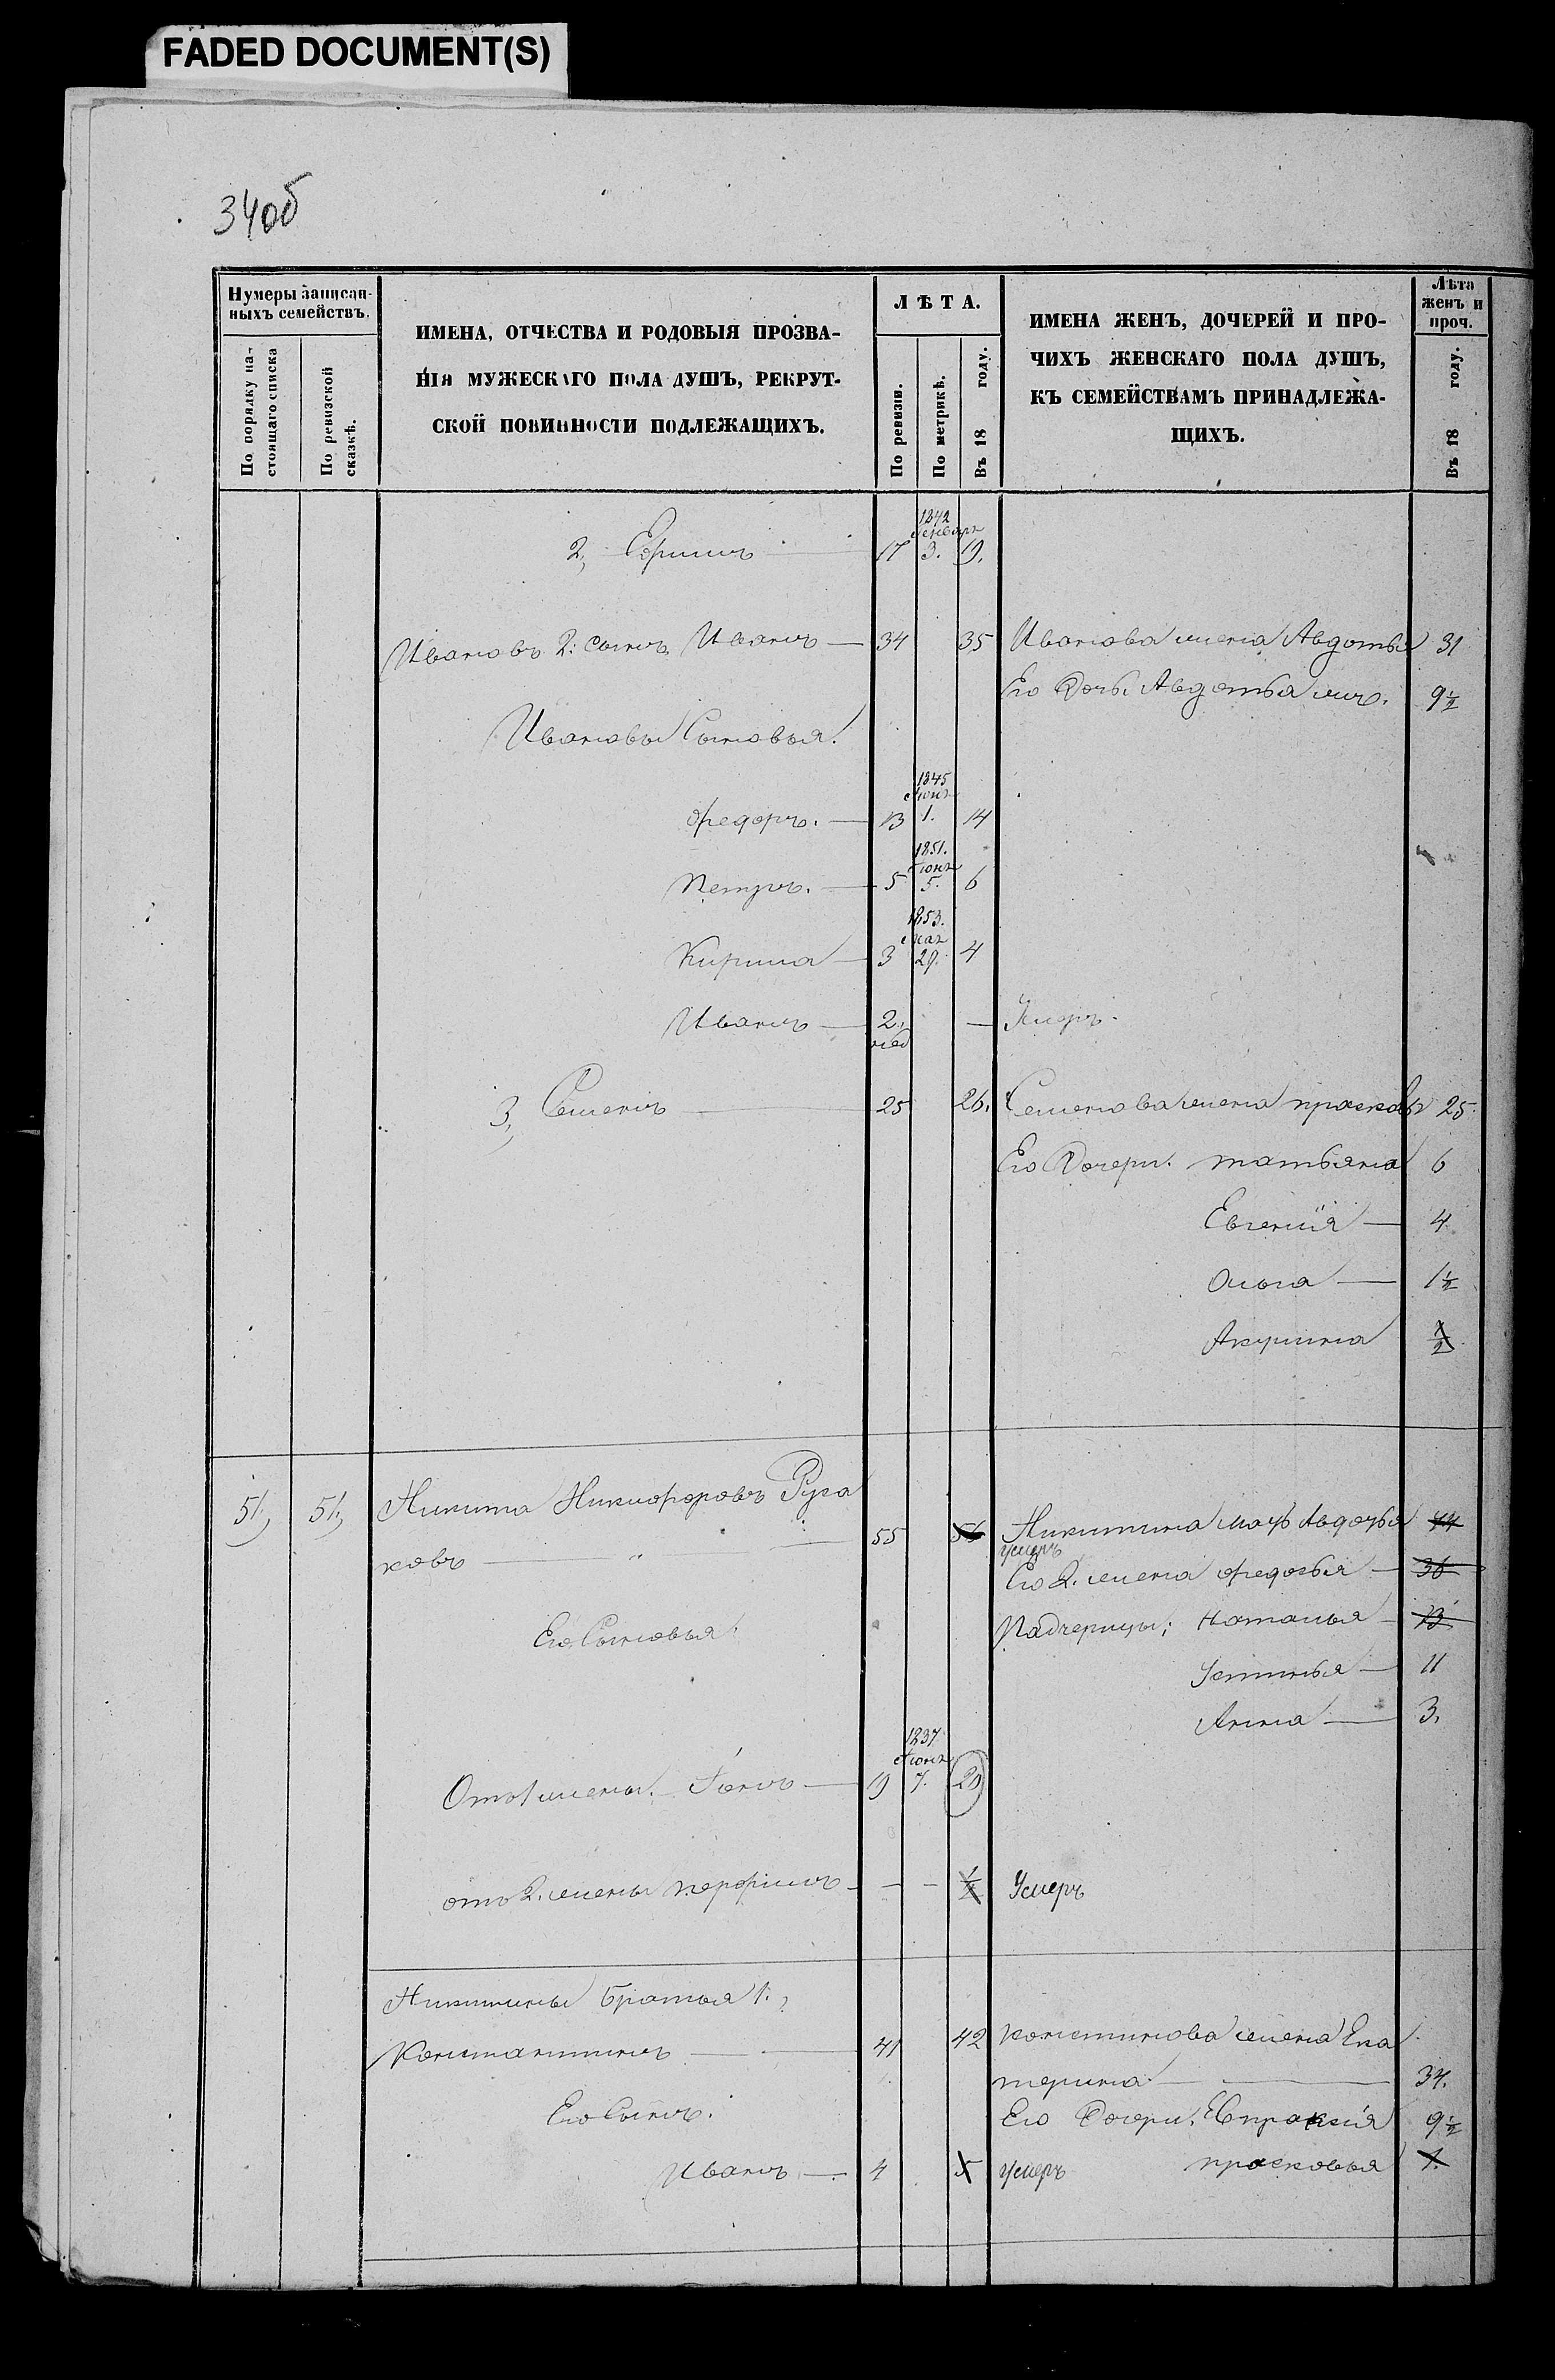 FADED DOCUMENT(S)
34об
Нумеры записан-
ныхъ семействъ.
По порядку на-
стоящаго списка
По ревизской
сказкѣ.
ИМЕНА, ОТЧЕСТВА И РОДОВЫЯ ПРОЗВА-
НІЯ МУЖЕСКАГО ПОЛА ДУШЪ, РЕКРУТ-
СКОЙ ПОВИННОСТИ ПОДЛЕЖАЩИХЪ.
ЛѢТА.
По ревизіи.
По метрикѣ.
Въ 18 году.
ИМЕНА ЖЕНЪ, ДОЧЕРЕЙ И ПРО-
ЧИХЪ ЖЕНСКАГО ПОЛА ДУШЪ,
КЪ СЕМЕЙСТВАМЪ ПРИНАДЛЕЖА-
ЩИХЪ.
Лѣта
женъ и
проч.
Въ 18 году.
1842
Генваря
2, Ефимъ 17 3. 19.
Ивановъ 2: сынъ Иванъ 34 35 Иванова жена Авдотья 31
Его Дочь Авдотья 9½
Ивановы Сыновья.
1845
Ѳедоръ. 13 1. 14
1851.
Петръ. 5 5. 6
1853.
Мая
Кирила 3 29. 4
Иванъ 2. нед — Умеръ.
3, Семенъ 25 26. Семенова жена Прасковья 25.
Его Дочери. татьяна 6
Евгенія 4
Ольга 1½
Акулина ½
51, 51, Никита Никифоровъ Руса
ковъ 55 56 Никитина мать Авдотья 74
умеръ
Его 2. жена Ѳедосья 36
Падчерицы: Наталья 13
Его Сыновья. Устинья 11
Анна 3.
1837.
От 1 жены. 19 7. 20
отъ 2. жены Перфилъ — — ½ Умеръ
Никитины братья 1.,
Константинъ 41 42 Констинова жена Ека
терина 34.
Его Сынъ. Его Дочери. Евпраксія 9½
Иванъ 4 5 умеръ прасковья 1.